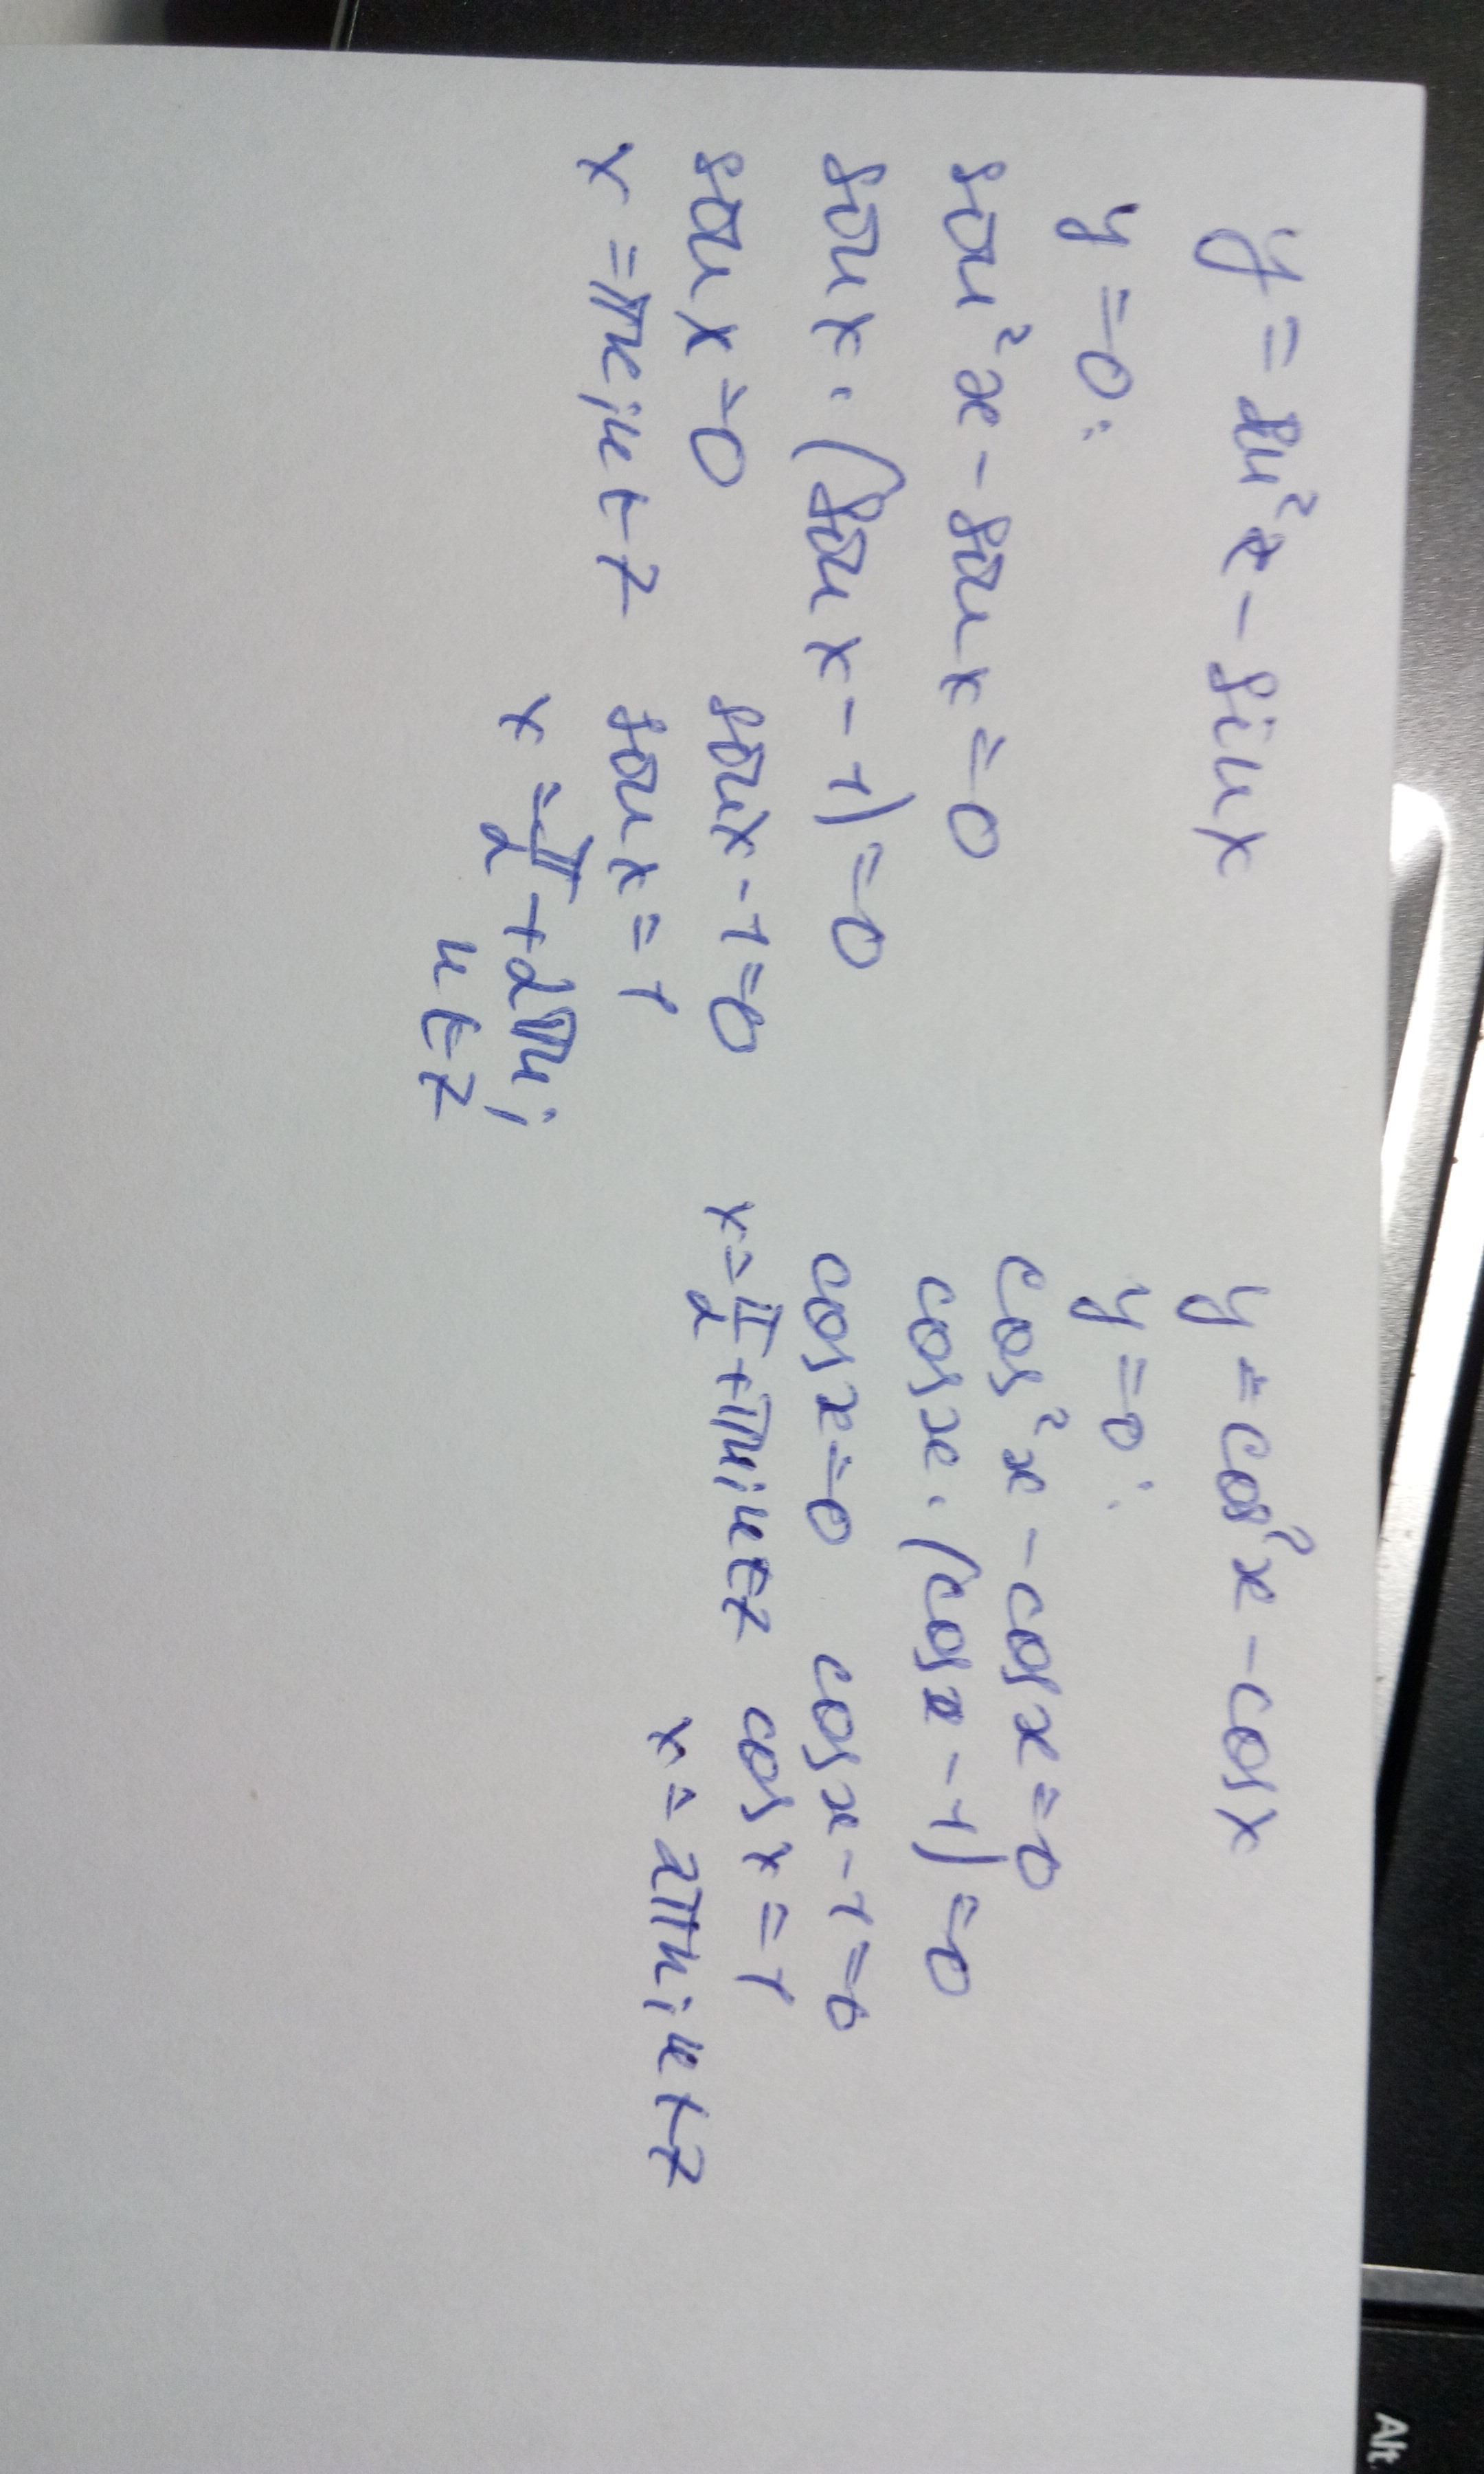 y = sin²x - sinx
y = 0:
sin²x - sinx = 0
sinx · (sinx - 1) = 0
sinx = 0 sinx - 1 = 0
x = πn; n ∈ Z sinx = 1
x = π/2 + 2πn;
n ∈ Z
y = cos²x - cosx
y = 0:
cos²x - cosx = 0
cosx · (cosx - 1) = 0
cosx = 0 cosx - 1 = 0
x = π/2 + πn; n ∈ Z cosx = 1
x = 2πn; n ∈ Z
Alt